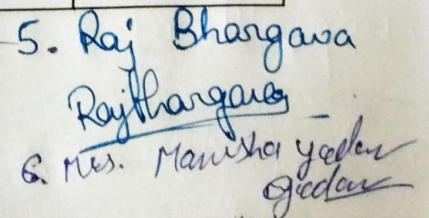 5. Raj Bhargava
RajBhargava
6. Mrs. Manisha Yadav
Yadav